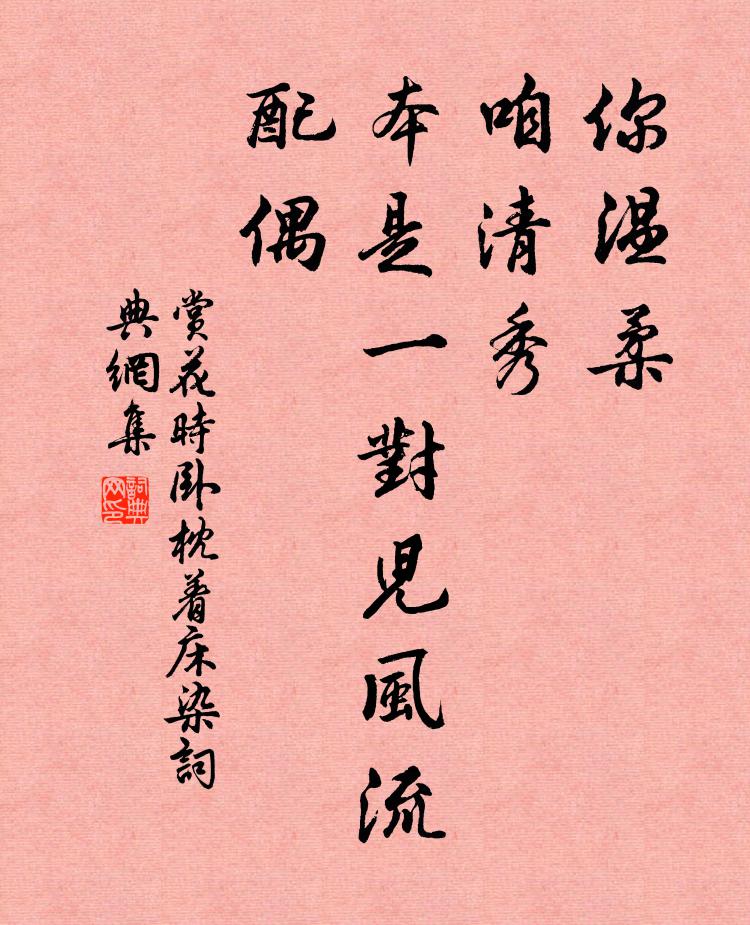 你温柔
咱清秀
本是一對兒風流
配偶
賞花時卧枕着床染詞
典網集
詞典
网印